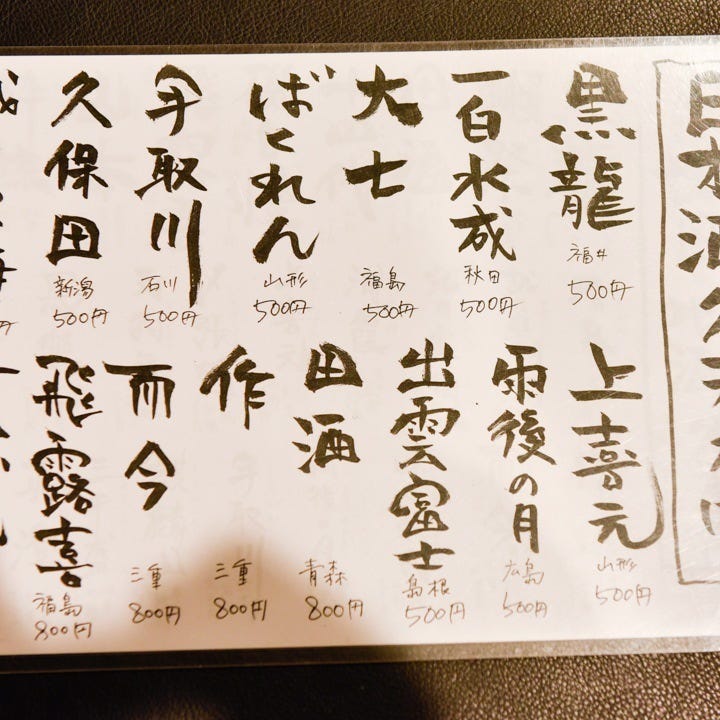 日本酒
黒龍
福井
500円
一白水成
秋田
500円
大七
福島
500円
ばくれん
山形
500円
手取川
石川
500円
久保田
新潟
500円
上喜元
山形
500円
雨後の月
広島
500円
出雲富士
島根
500円
田酒
青森
800円
作
三重
800円
而今
三重
800円
飛露喜
福島
800円